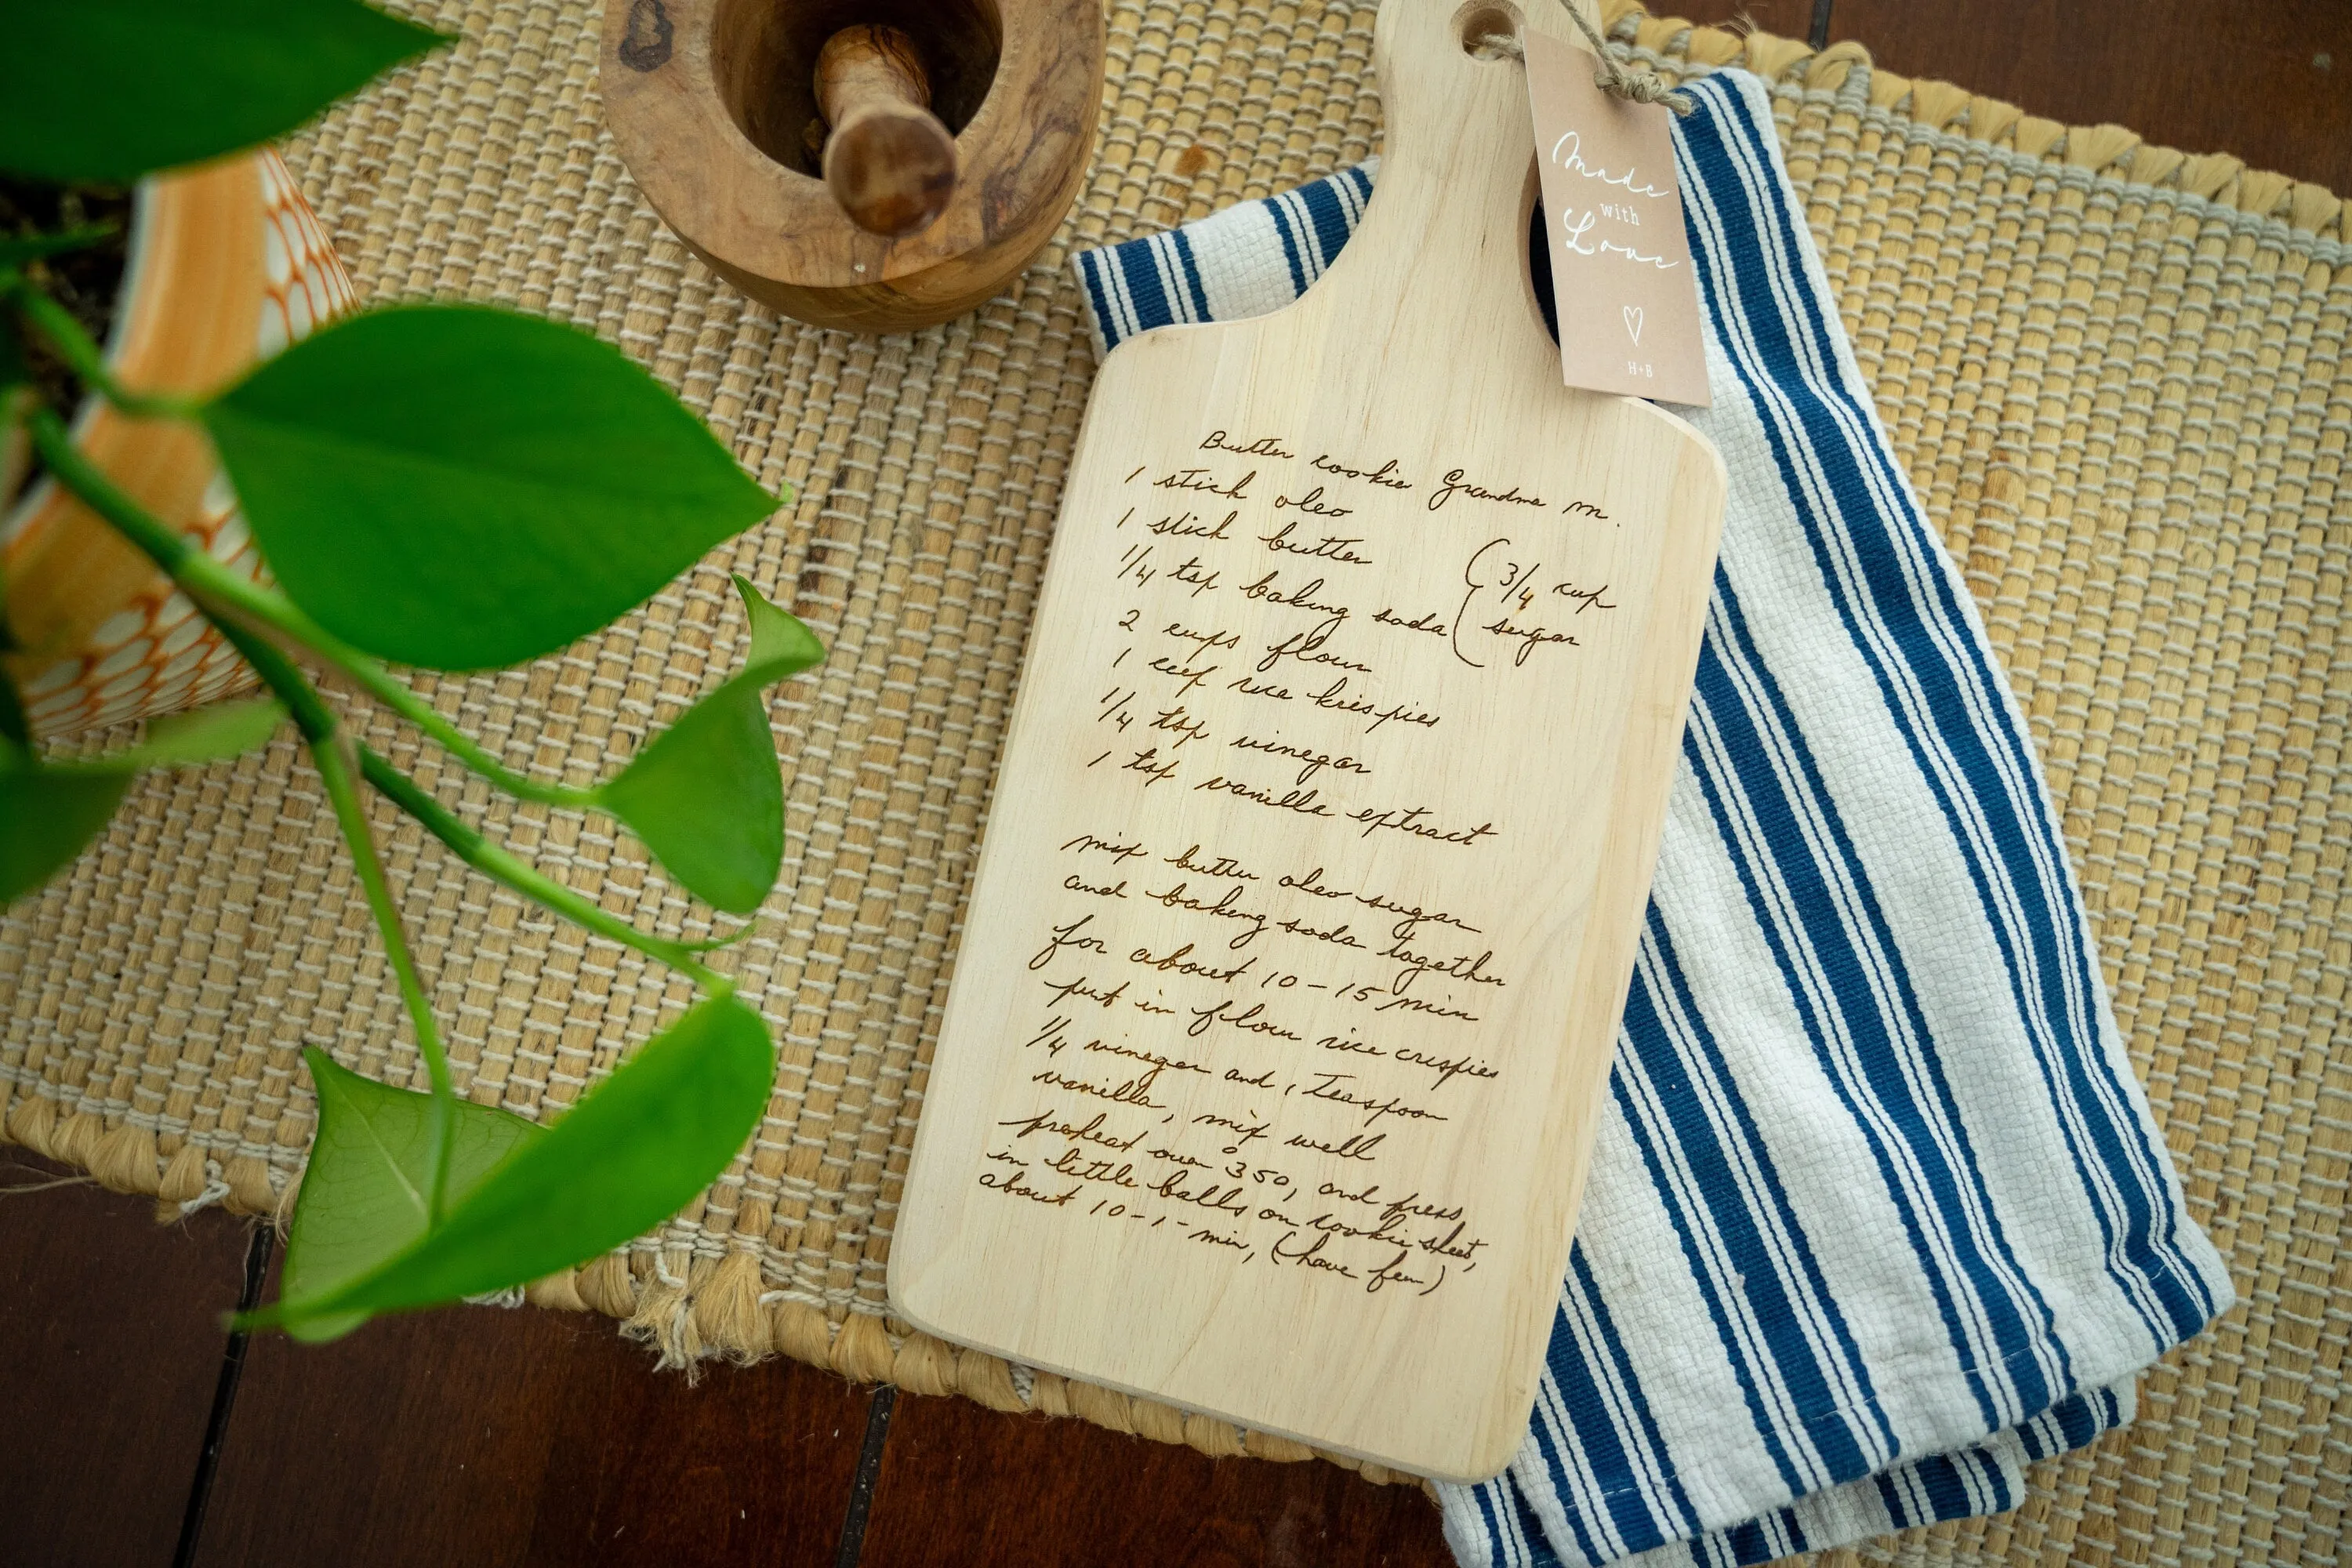 Made
with
Love
H+B
Butter cookie Grandma M.
1 stick oleo
1 stick butter
1/4 tsp baking soda
(3/4 cup
(sugar
2 cups flour
1 cup rice krispies
1/4 tsp vinegar
1 tsp vanilla extract
mix butter oleo sugar
and baking soda together
for about 10-15 min
put in flour rice crispies
1/4 vinegar and 1 Teaspoon
vanilla, mix well
preheat oven 350, and press
in little balls on cookie sheet,
about 10-1- min, (have fun)